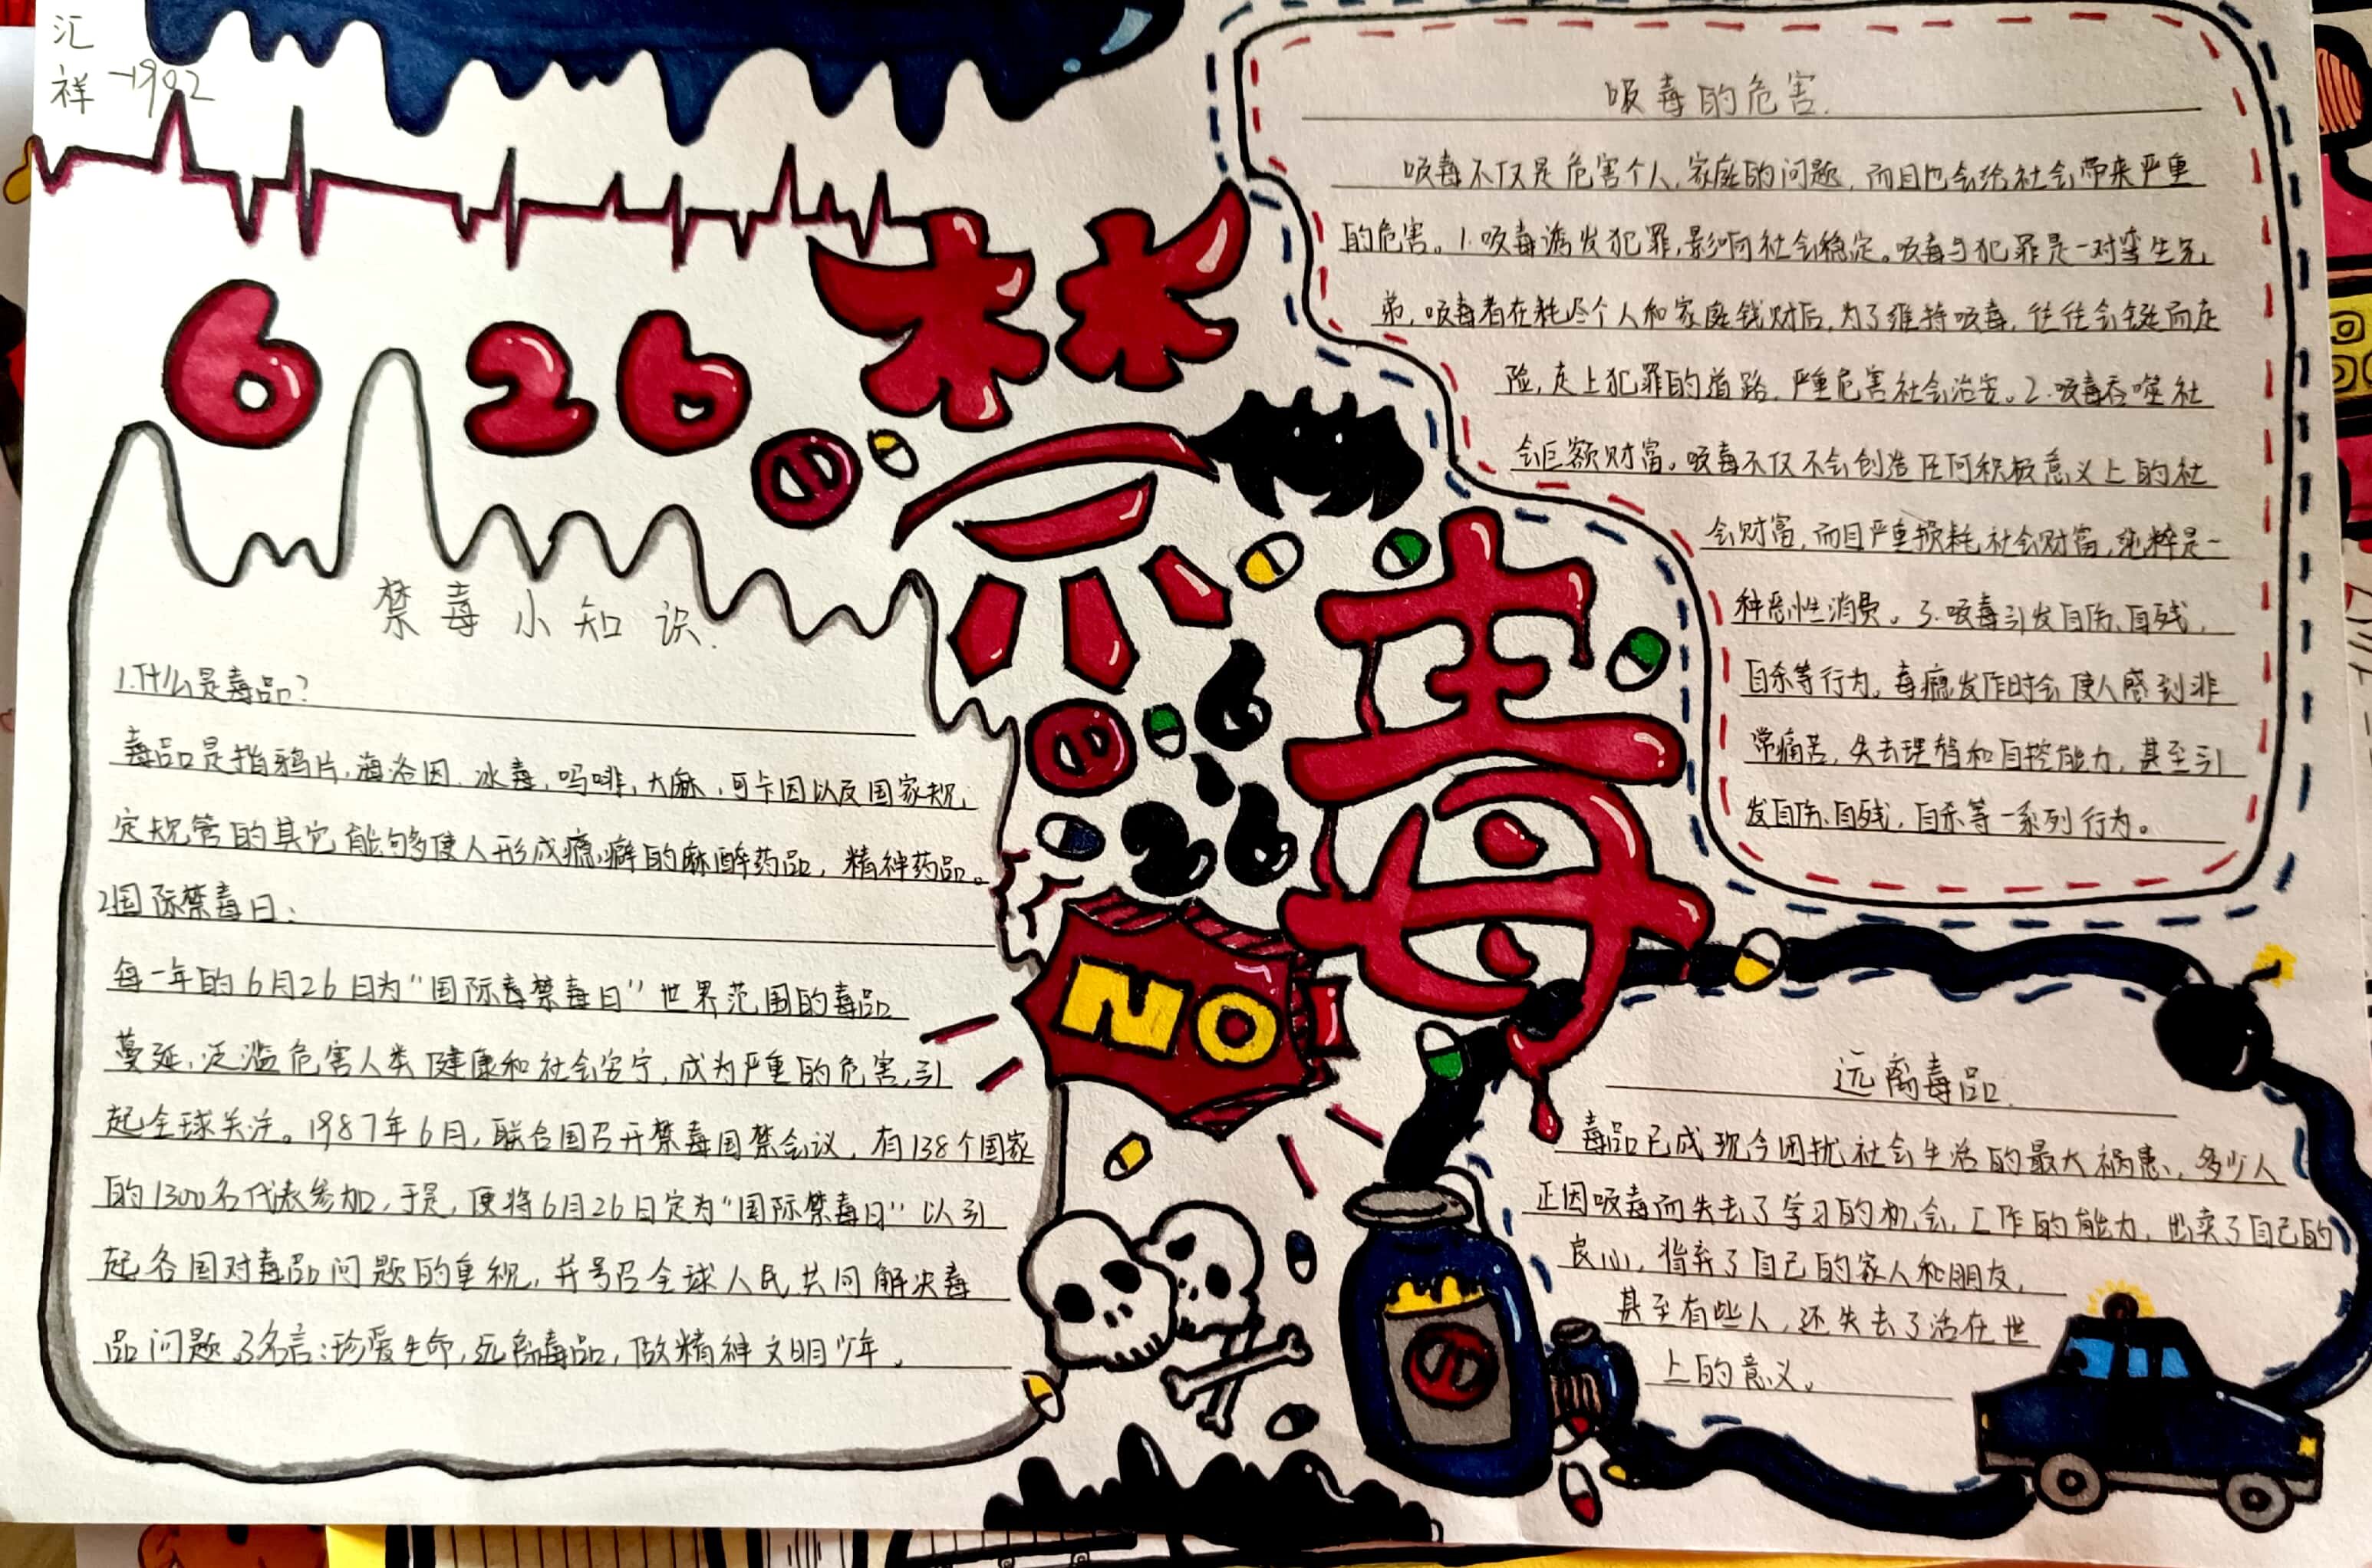 汇
祥
1902
6 26
禁
毒
6
26
NO
禁毒小知识.
1.什么是毒品?
毒品是指鸦片,海洛因,冰毒,吗啡,大麻,可卡因以及国家规
定规管的其它能够使人形成瘾癖的麻醉药品,精神药品。
2国际禁毒日:
每一年的6月26日为“国际毒禁毒日”世界范围的毒品
蔓延,泛滥危害人类健康和社会安宁,成为严重的危害,引
起全球关注。1987年6月,联合国召开禁毒国禁会议,有138个国家
的1300名代表参加,于是,便将6月26日定为“国际禁毒日”以引
起各国对毒品问题的重视,并号召全球人民共同解决毒
品问题 3名言:珍爱生命,远离毒品,做精神文明少年。
吸毒的危害.
吸毒不仅是危害个人,家庭的问题,而且也会给社会带来严重
的危害。1.吸毒诱发犯罪,影响社会稳定。吸毒与犯罪是一对孪生兄
弟,吸毒者在耗尽个人和家庭钱财后,为了维持吸毒,往往会铤而走
险,走上犯罪的道路,严重危害社会治安。2.吸毒吞噬社
会巨额财富。吸毒不仅不会创造任何积极意义上的社
会财富,而且严重损耗社会财富,纯粹是一
种恶性消费。3.吸毒引发自伤、自残,
自杀等行为。毒瘾发作时会使人感到非
常痛苦,失去理智和自控能力,甚至引
发自伤、自残,自杀等一系列行为。
远离毒品.
毒品已成现今困扰社会生活的最大祸患,多少人
正因吸毒而失去了学习的机会,工作的能力,出卖了自己的
良心,背弃了自己的家人和朋友,
甚至有些人,还失去了活在世
上的意义。